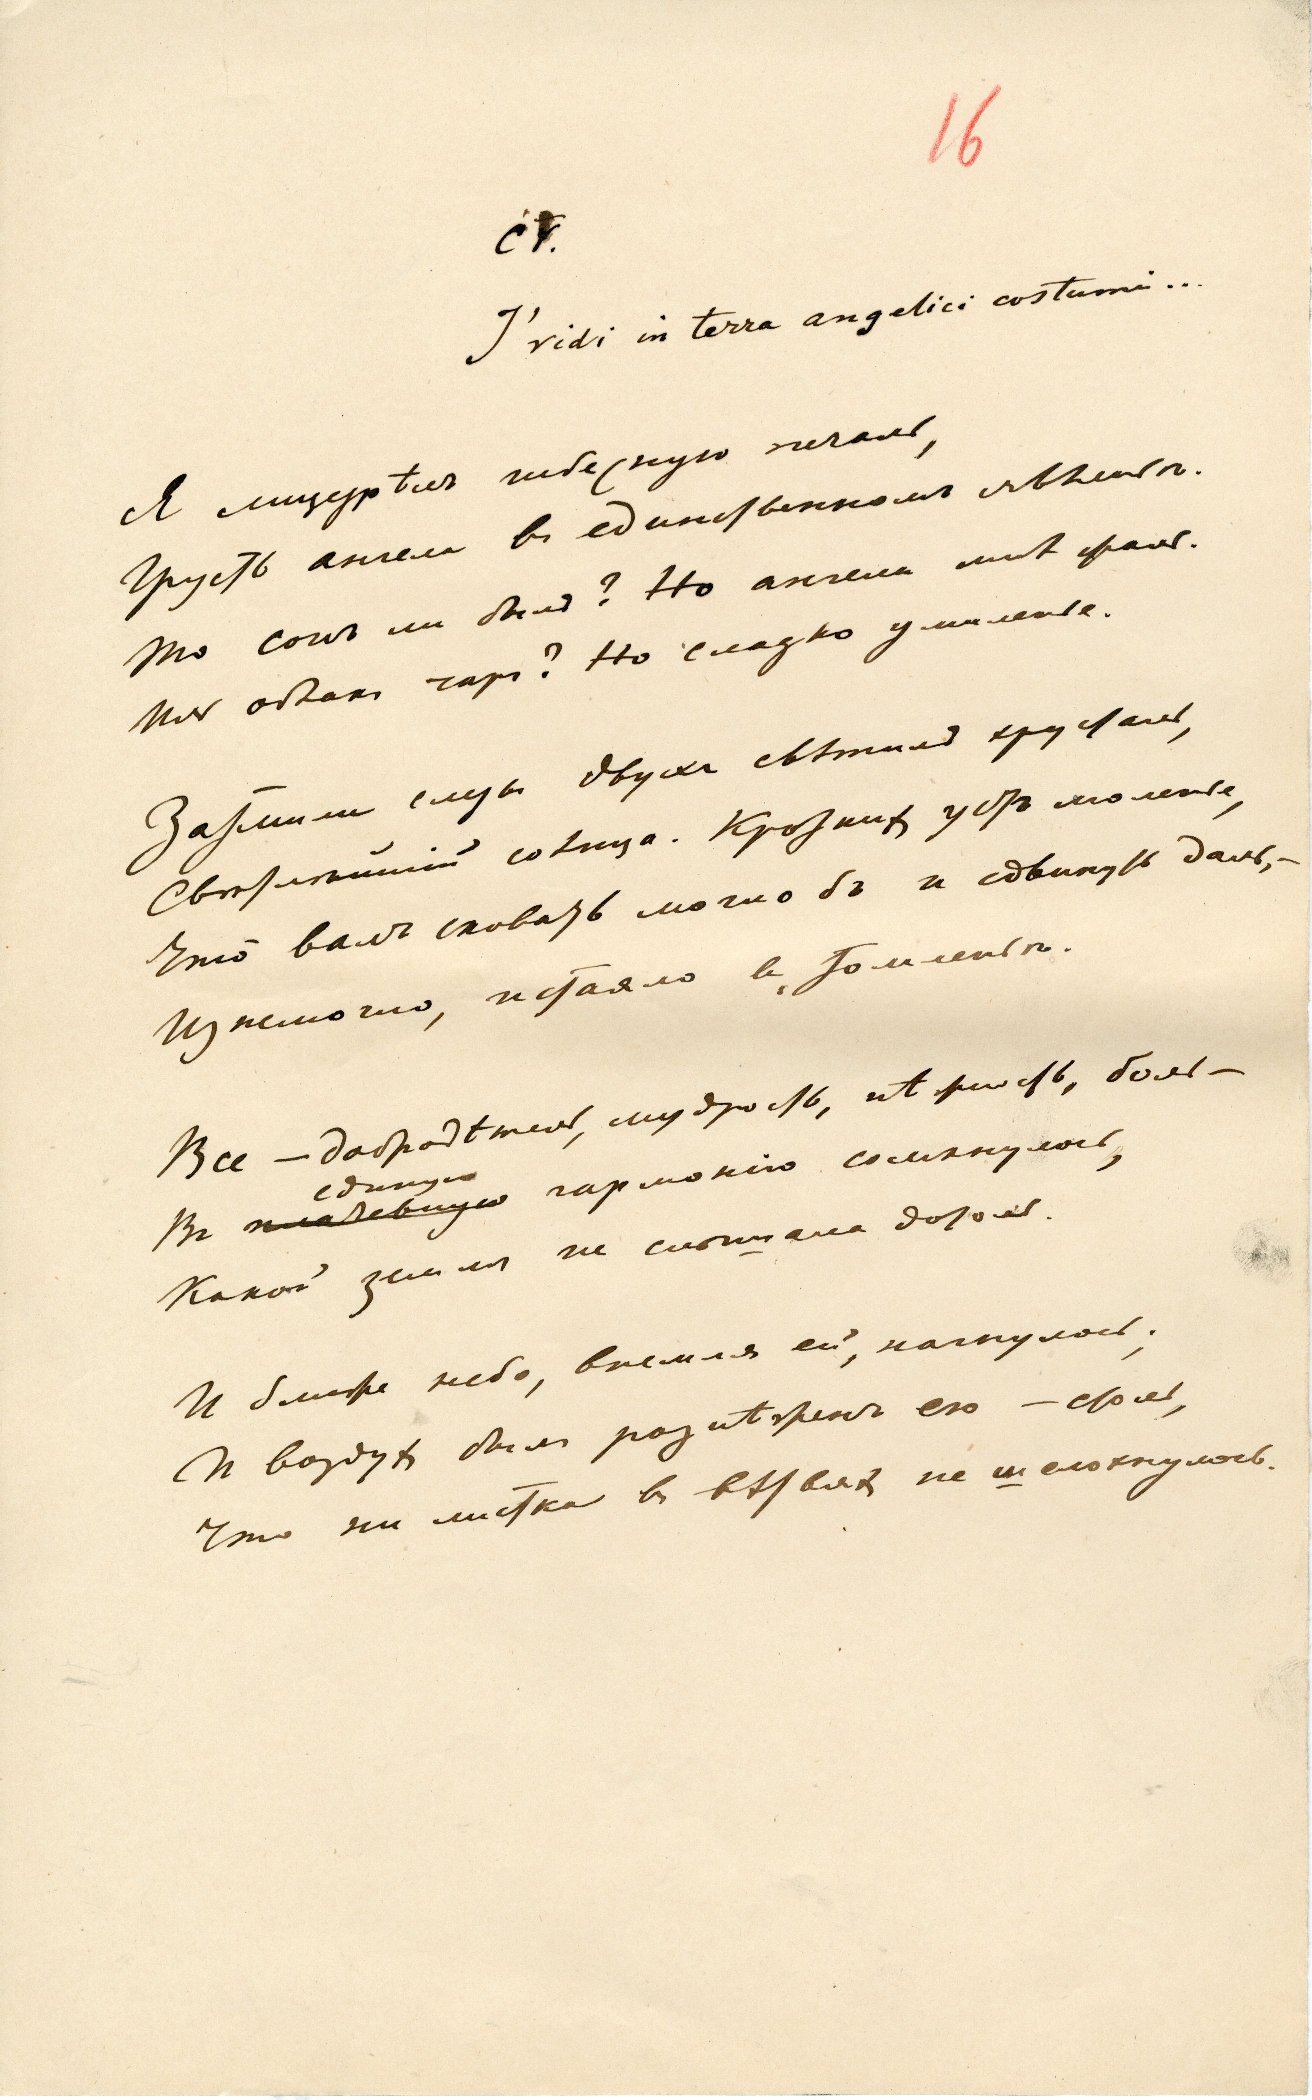 16
CV.
I' vidi in terra angelici costumi...
Я лицезрѣлъ небесную печаль,
Грусть ангела въ единственномъ явленьи.
То сонъ ли былъ? Но ангела мнѣ жаль.
Иль облакъ чаръ? Но сладко умиленье.
Затмили слезы двухъ свѣтилъ хрусталь,
Свѣтлѣйшій солнца. Кроткихъ устъ моленье,
Что́ валъ сковать могло бъ и сдвинуть даль,—
Изнемогло, истаяло въ томленьи.
Все — добродѣтель, мудрость, нѣжность, боль —
Въ единую гармонію сомкнулось,
Какой земля не слышала дотоль.
И ближе небо, внемля ей, нагнулось;
И воздухъ былъ разнѣженъ ею — столь,
Что ни листка въ вѣтвяхъ не шелохнулось.